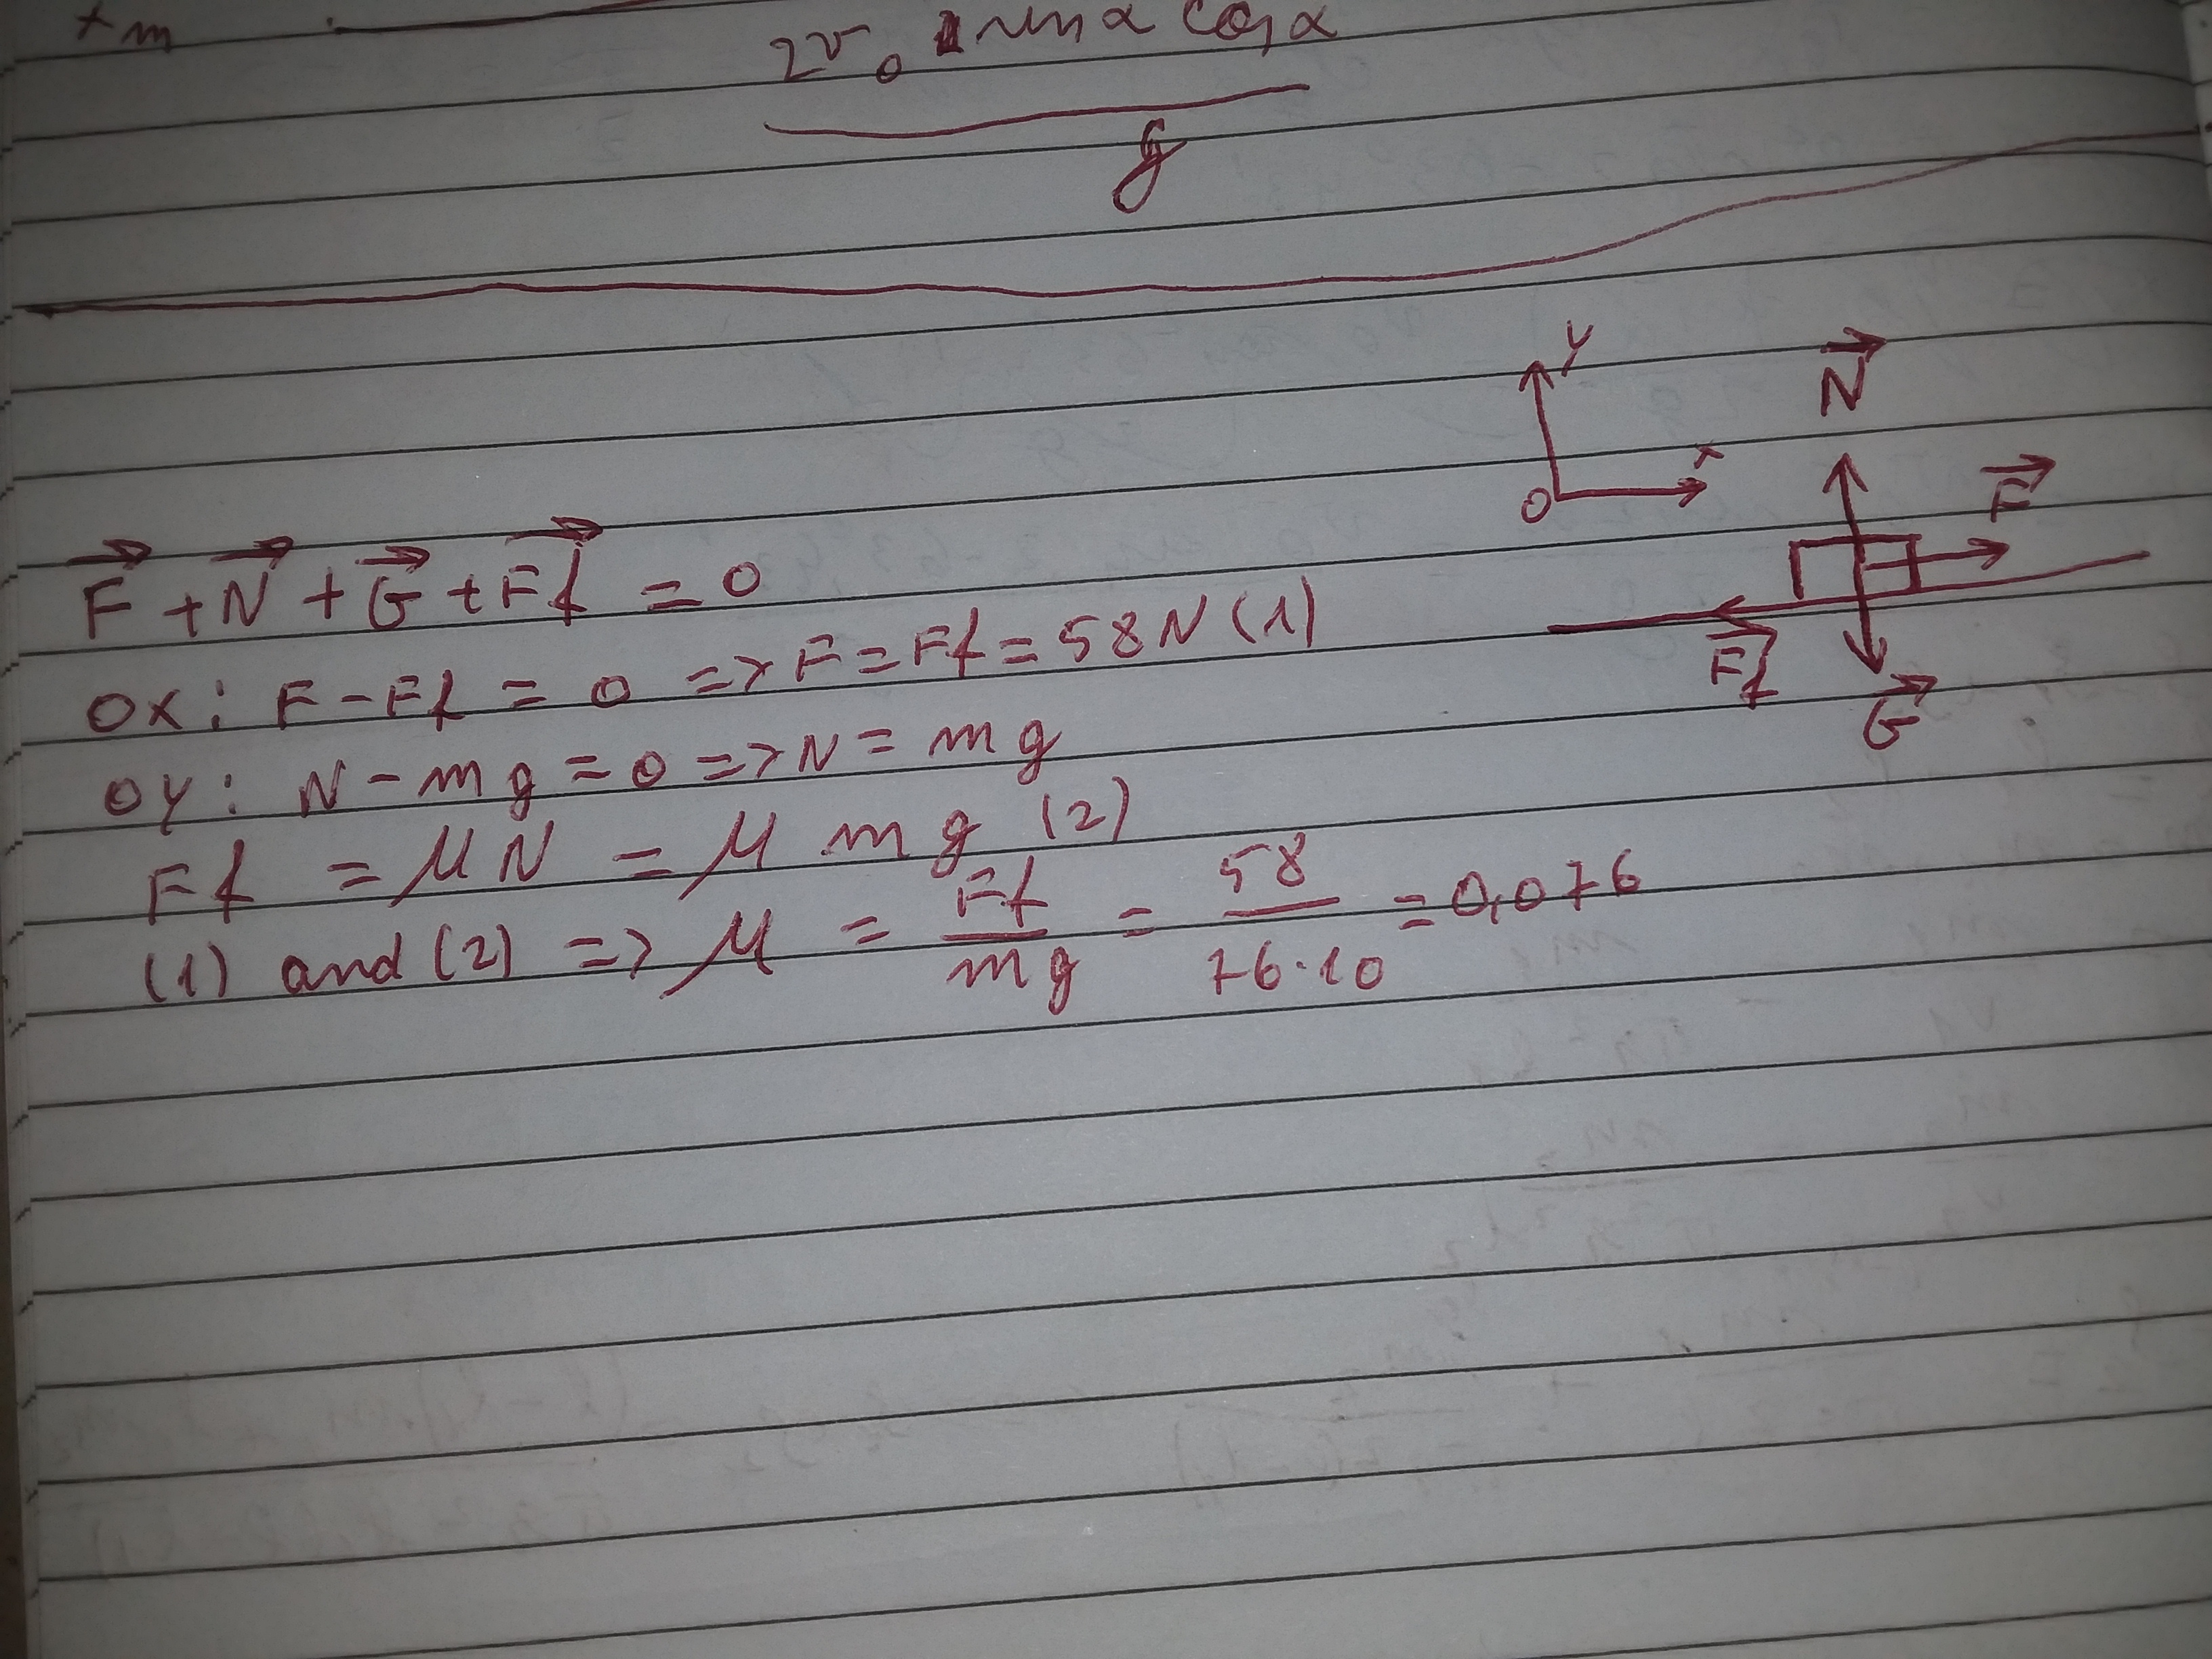 +m
2v₀ sin α cos α
g
y
N
x
O
F
Ff
G
F + N + G + Ff = 0
OX: F - Ff = 0 => F = Ff = 58 N (1)
OY: N - mg = 0 => N = mg
Ff = μN = μ mg (2)
(1) and (2) => μ = Ff/mg = 58/76·10 = 0,076